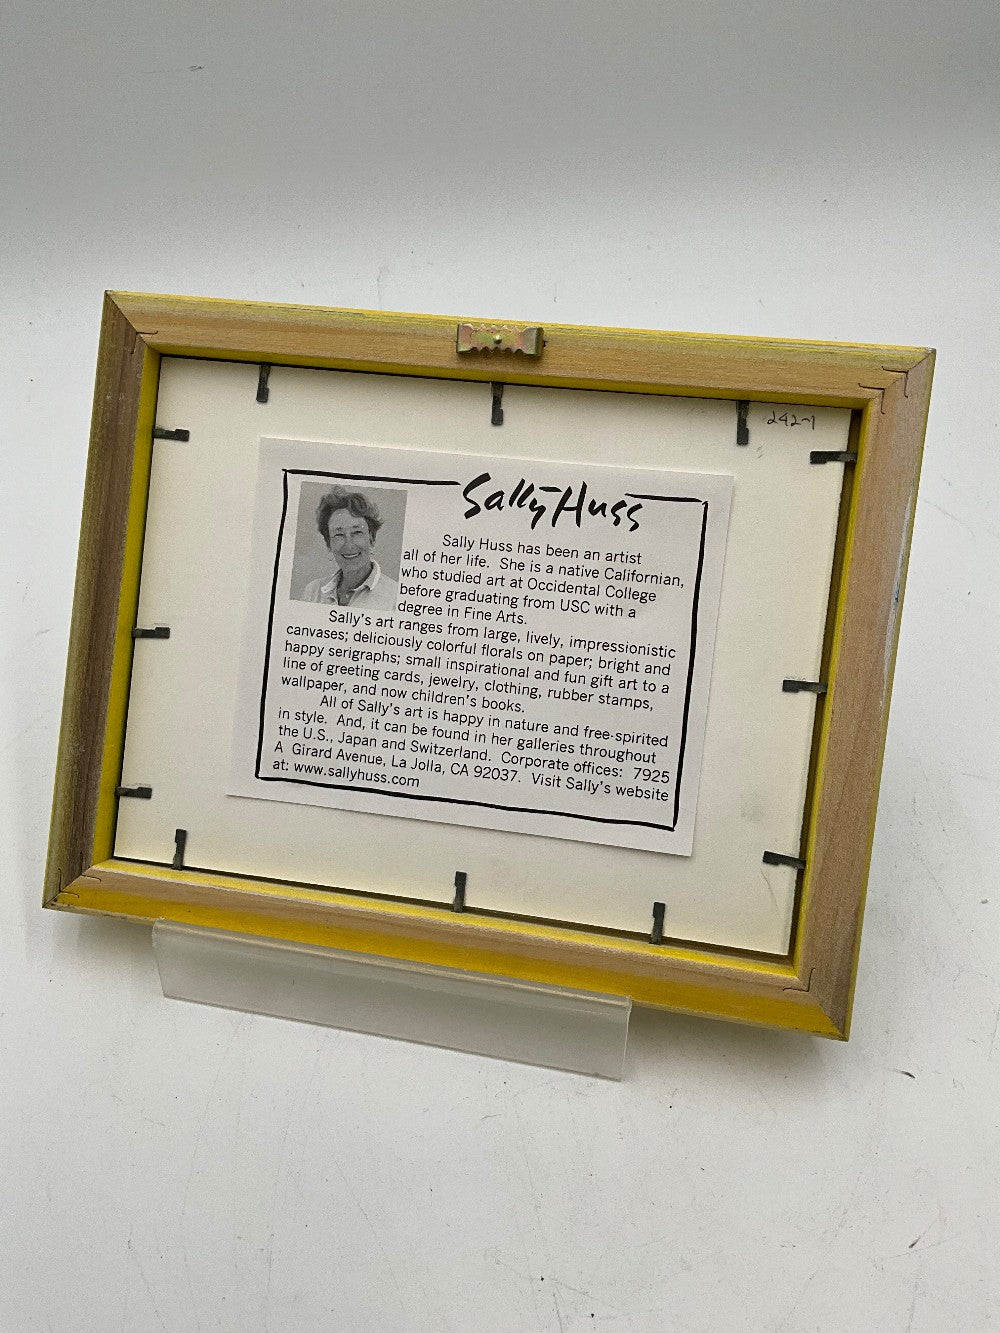 242-1
Sally Huss
Sally Huss has been an artist
all of her life. She is a native Californian,
who studied art at Occidental College
before graduating from USC with a
degree in Fine Arts.
Sally's art ranges from large, lively, impressionistic
canvases; deliciously colorful florals on paper; bright and
happy serigraphs; small inspirational and fun gift art to a
line of greeting cards, jewelry, clothing, rubber stamps,
wallpaper, and now children's books.
All of Sally's art is happy in nature and free-spirited
in style. And, it can be found in her galleries throughout
the U.S., Japan and Switzerland. Corporate offices: 7925
A Girard Avenue, La Jolla, CA 92037. Visit Sally's website
at: www.sallyhuss.com